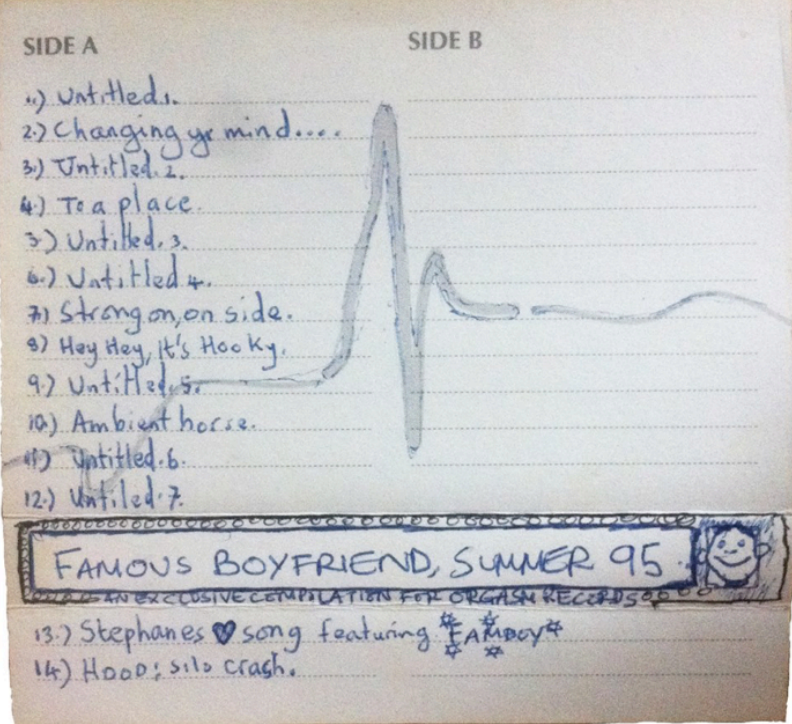 SIDE A
SIDE B
1.) Untitled.1.
2.) Changing yr mind....
3.) Untitled.2.
4.) To a place.
5.) Untitled.3.
6.) Untitled 4.
7.) Strong on, on side.
8) Hey Hey, it's Hooky.
9.) Untitled.5.
10.) Ambient horse.
11) Untitled.6.
12.) Untiled.7.
FAMOUS BOYFRIEND, SUMMER 95
AN EXCLUSIVE COMPILATION FOR ORGASM RECORDS
13.) Stephanes ♥ song featuring *FAMBOY*
14) HOOD: silo crash.